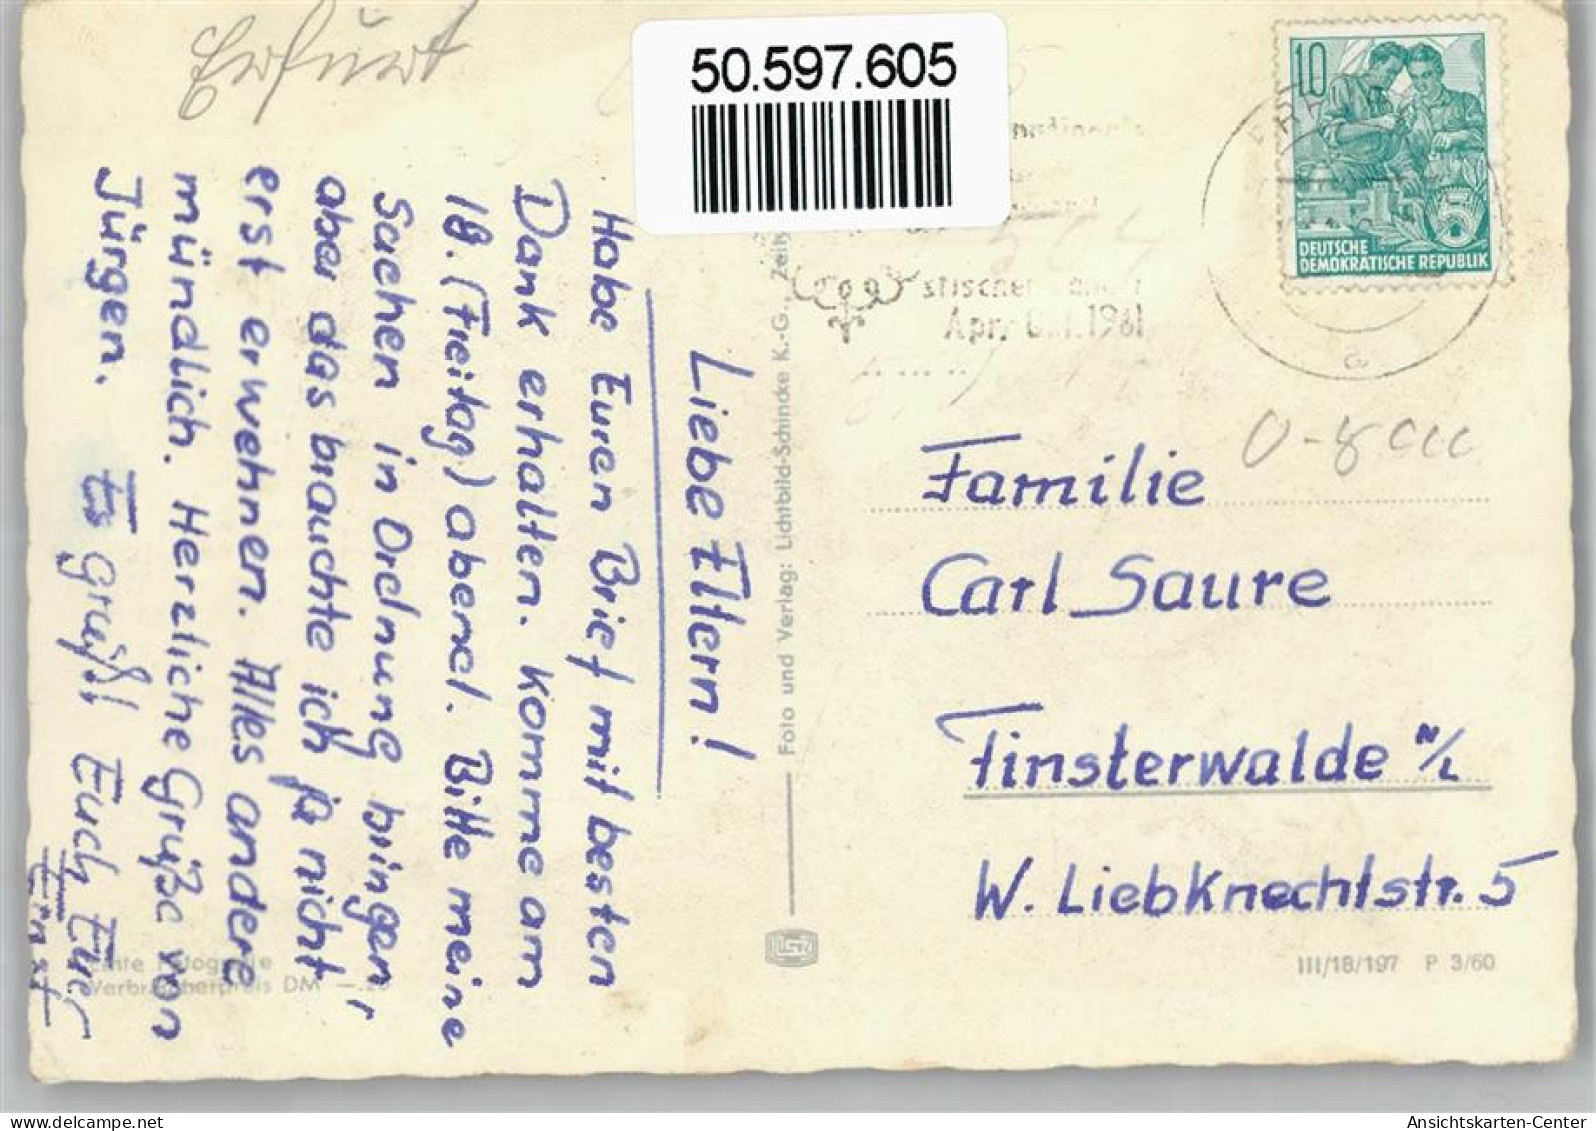 Erfurt
50.597.605
10
DEUTSCHE
DEMOKRATISCHE REPUBLIK
Apr. Okt. 1961
a
Liebe Eltern!
Habe Euren Brief mit besten
Dank erhalten. Komme am
18. (Freitag) abend. Bitte meine
Sachen in Ordnung bringen,
aber das brauchte ich ja nicht
erst erwehnen. Alles andere
mündlich. Herzliche Grüße von
Jürgen. Es grüßt Euch Euer
Ernst
Foto und Verlag: Lichtbild-Schincke K.-G., Zeitz
Familie
Carl Saure
Finsterwalde N/L
W. Liebknechtstr. 5
III/18/197 P 3/60
Echte Fotografie
Verbraucherpreis DM
Ansichtskarten-Center